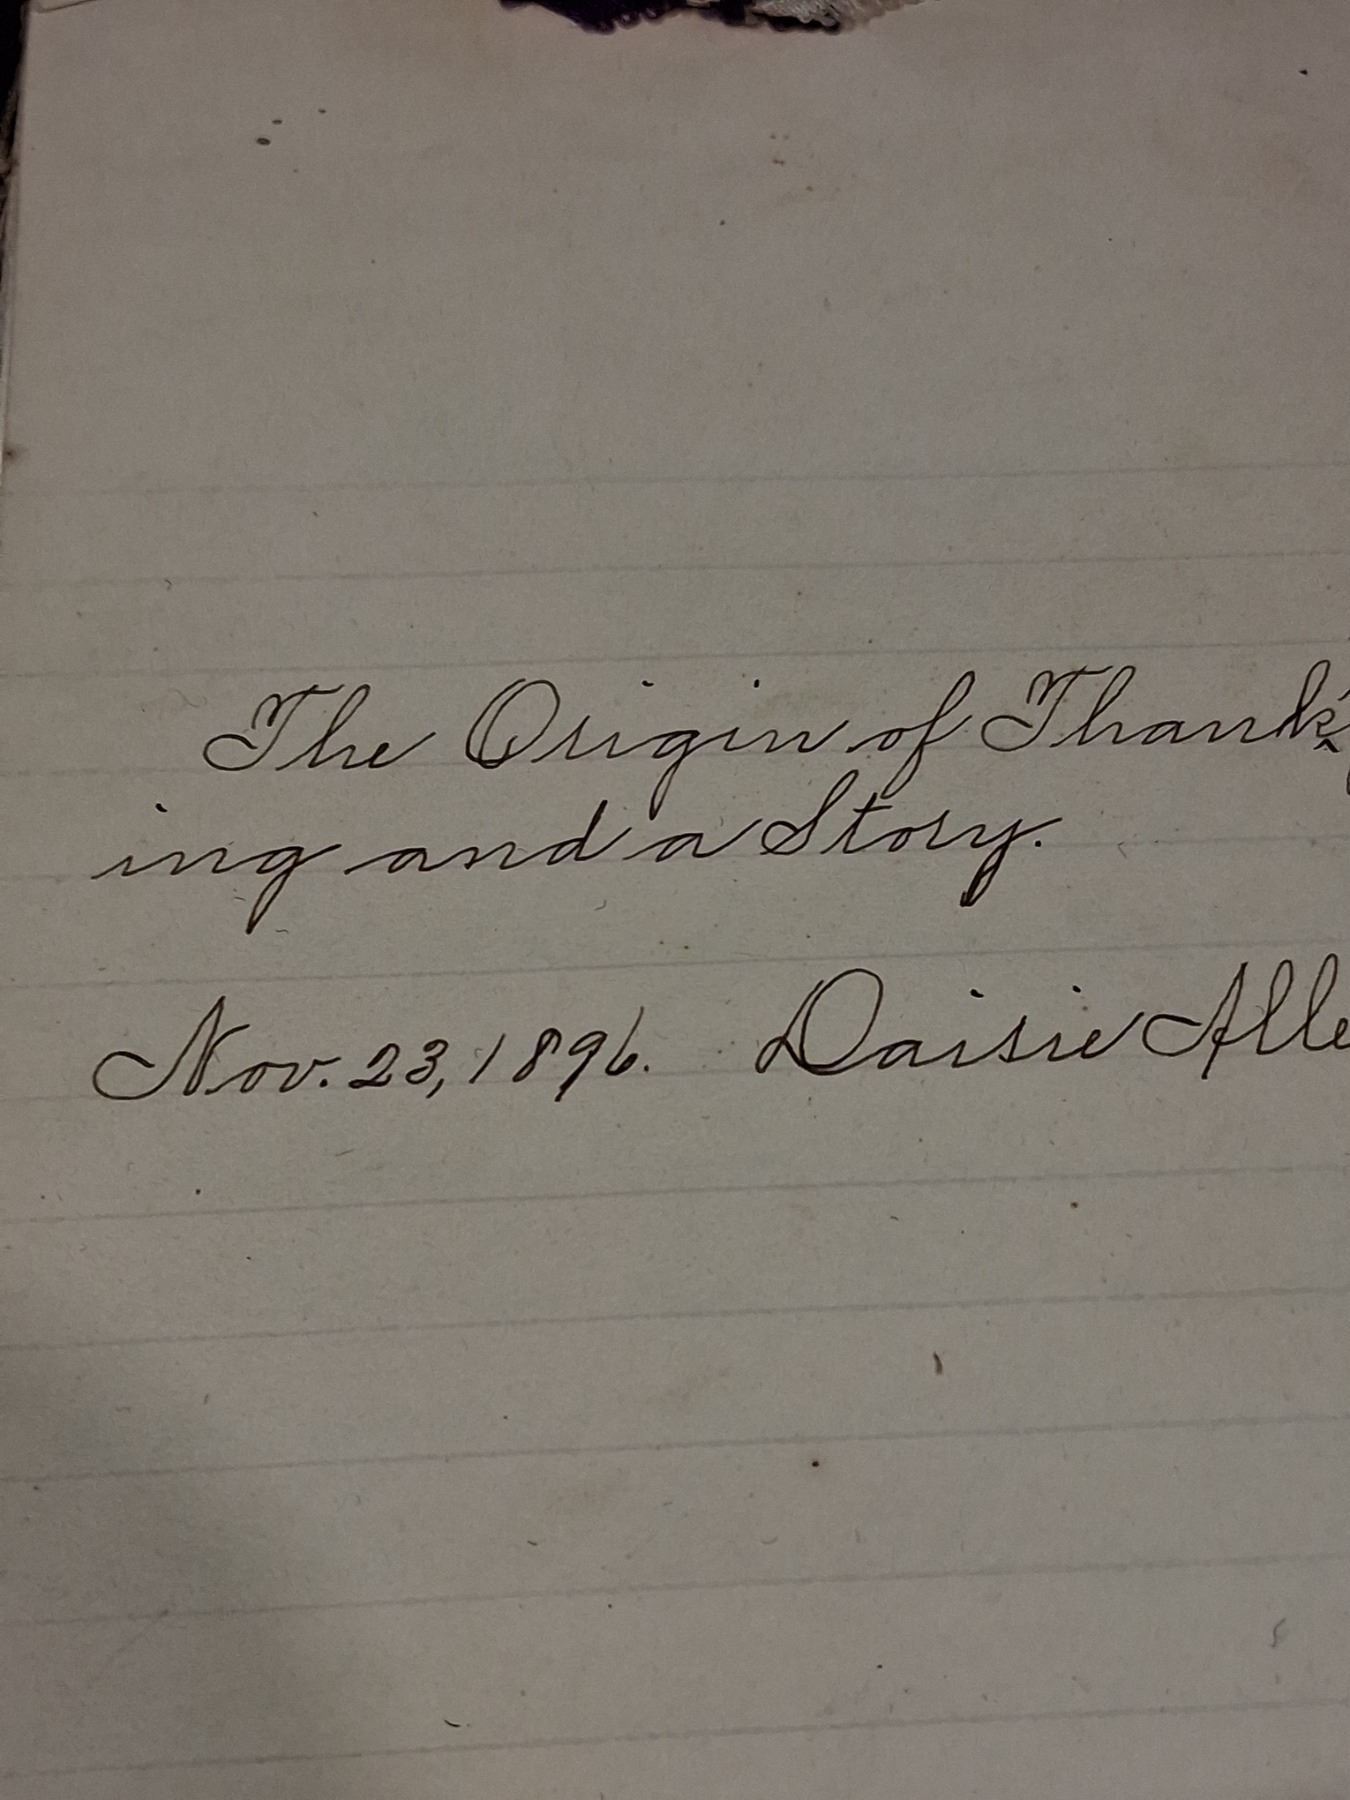 The Origin of Thank
ing and a Story.
Nov. 23, 1896. Daisie Alle